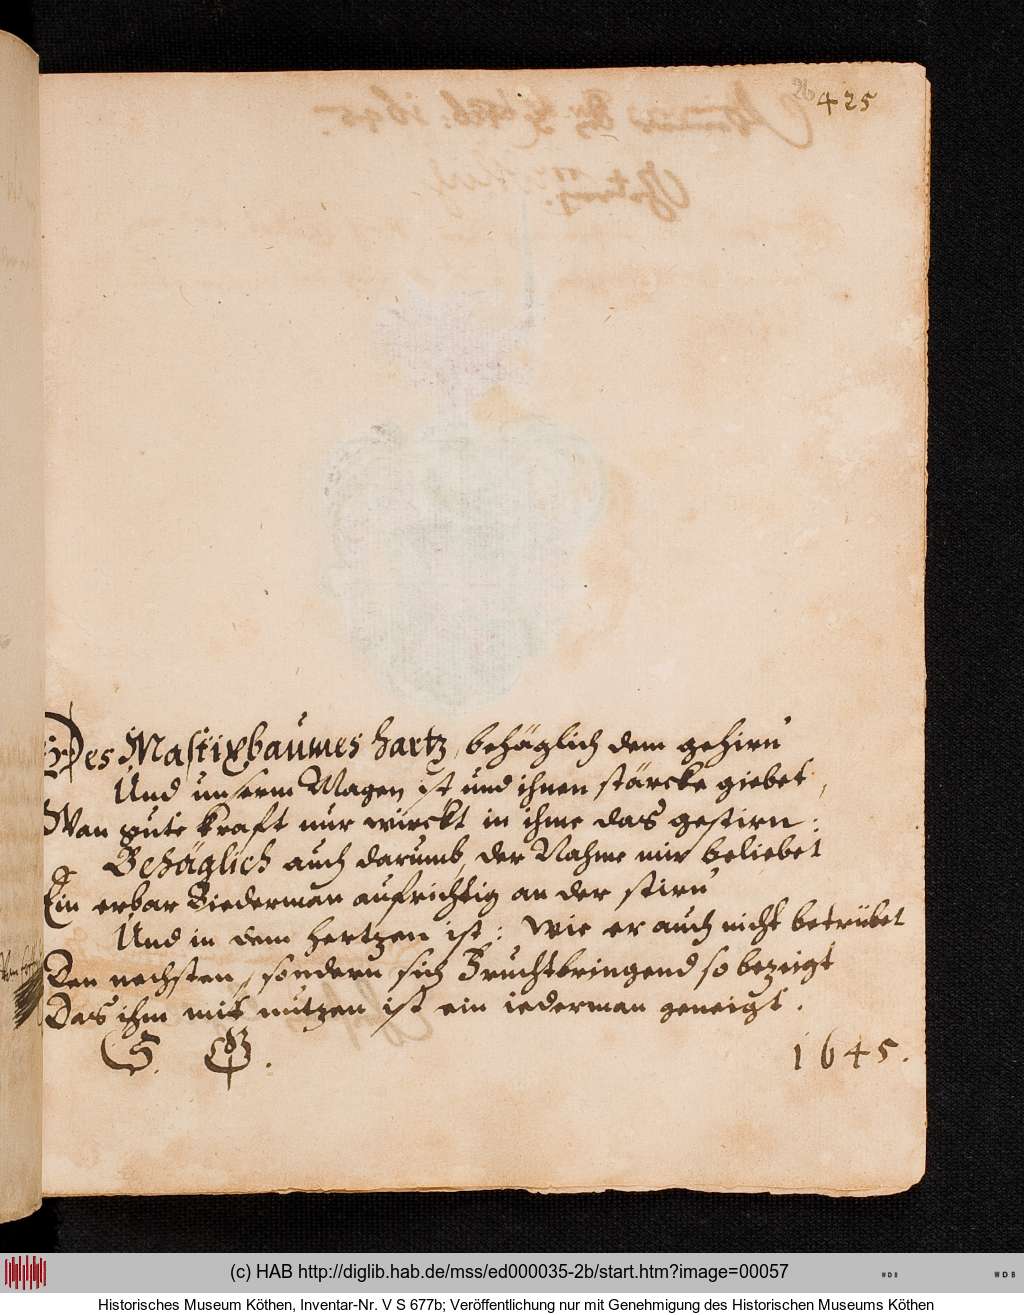 425
Des Mastixbaumes hartz, behäglich dem gehirn
Und unserm Magen ist und ihnen stärcke giebet,
Wan gute kraft nur wirckt in ihme das gestirn:
Behäglich auch darumb, der Nahme mir beliebet
Ein erbar Biederman aufrichtig an der stirn
Und in dem hertzen ist: wie er auch nicht betrübet
Den nechsten, sondern sich Fruchtbringend so bezeigt
Das ihm mit nutzen ist ein iederman geneigt.
1645.
(c) HAB http://diglib.hab.de/mss/ed000035-2b/start.htm?image=00057
WDB
WDB
Historisches Museum Köthen, Inventar-Nr. V S 677b; Veröffentlichung nur mit Genehmigung des Historischen Museums Köthen